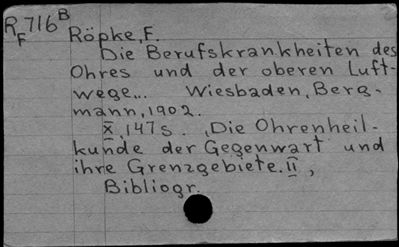 R 716 B
F
Röpke, F.
Die Berufskrankheiten des
Ohres und der oberen Luft-
wege... Wiesbaden, Berg-
mann, 1902.
X, 147 s. (Die Ohrenheil-
kunde der Gegenwart und
ihre Grenzgebiete. II,
Bibliogr.